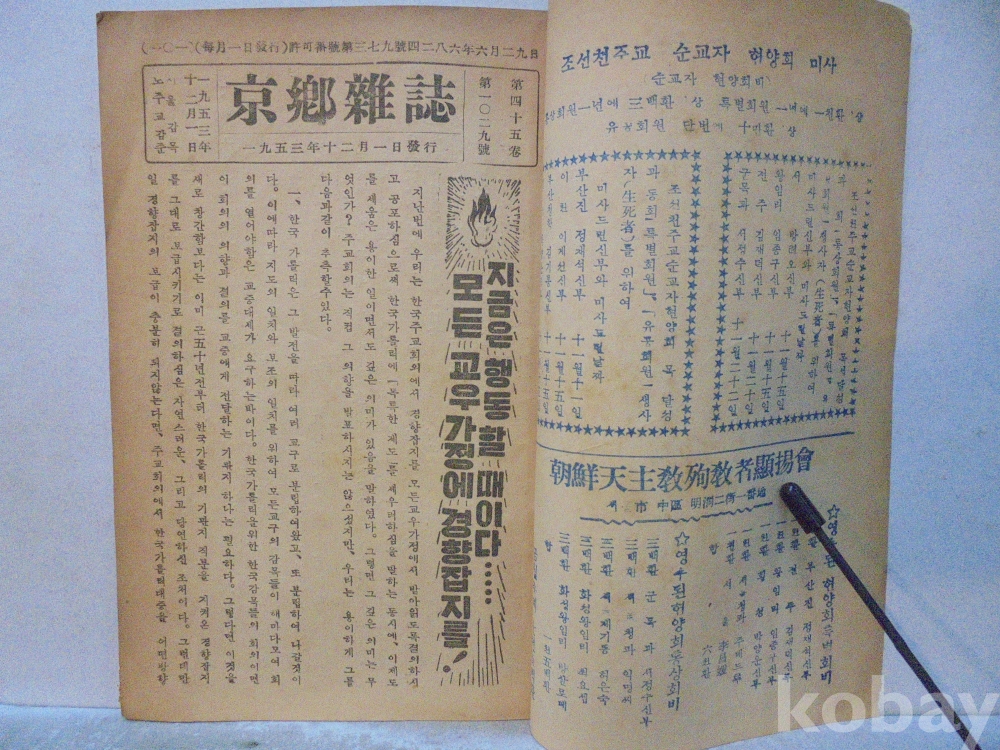 (一〇一)(每月一日發行)許可番號第三七九號四二八六年六月二九日
第四十五卷
第一〇二九號
京鄕雜誌
一九五三年十二月一日發行
一九五三年
十二月一日
서울감목
노주교감준
지금은 행동할 때이다……
모든 교우 가정에 경향잡지를!
지난번에 우리는 한국주교회의에서 경향잡지를 모든교우가정에서 받아읽도록결의하시
고 공포하심으로써 한국가톨릭에 독특한 제도를 세우려하심을 말하는 동시에, 이제도
를 세움은 용이한 일이면서도 깊은 의미가 있음을 말하였다. 그렇면 그 깊은 의미는 무
엇인가? 주교회의는 직접 그 의향을 발포하시지는 않으셨지만, 우리는 용이하게 그를
다음과같이 추측할수있다.
一、한국 가톨릭은 그 발전을 따라 여러 교구로 분립하여왔고, 또 분립하여 나갈것이
다. 이에따라 지도의 일치와 보조의 일치를 위하여 모든교구의 감목들이 해마다모여 회
의를 열어야함은 교중대세가 요구하는바이다. 한국가톨릭을위한 한국감목들의 회의이면
이 회의의 의향과 결의를 교중에게 전달하는 기관지 하나는 필요하다. 그렇다면 이것을
새로 창간함보다는 이미 근五十년전부터 한국가톨릭의 기관지 직분을 지켜온 경향잡지
를 그대로 보급시키기로 결의하심은 자연스러운, 그리고 당연하신 조처이다. 그런데만
일 경향잡지의 보급이 충분히 되지않는다면, 주교회의에서 한국가톨릭대중을 어떤방향
조선천주교 순교자 현양회 미사
순교자 현양회비
통상회원一년에 三백환 이상 특별회원 一년에 一천환 이상
유공회원 단번에 十만환 이상
조선천주교순교자현양회 목적달성
과 동회「통상회원」、「특별회원」、유
공회원」생사자(生死者)를 위하여
미사드릴신부와 미사드릴날자
왕림리 임종구신부 十一月十五일
전주 김재덕신부 十一月十五일
군목과 서정수신부 十一月二十二일
조선천주교순교자현양회 목적달성
과 동회「특별회원」、「유공회원」생사
자(生死者)를 위하여
미사드릴신부와 미사드릴날자
부산진 정재석신부 十一月十一일
朝鮮天主敎殉敎者顯揚會
서울市中區明洞二街一番地
☆영수된 현양회특별회비
一천환 부산진 정재석신부
一천환 전주 김재덕신부
一천환 왕림리 임종구신부
합 六천환
☆영수된현양회통상회비
三백환 군목과 서정수신부
합 一천五백환
kobay